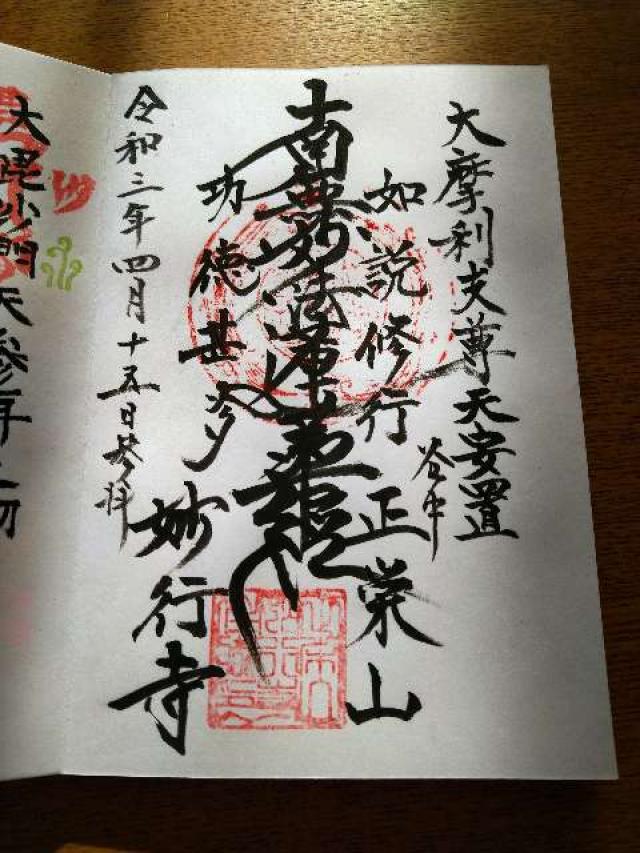 大摩利支尊天安置
谷中
如説修行
正栄山
南無妙法蓮華経
功徳甚多
妙行寺
令和三年四月十五日参拝
大毘沙門天参拝之切